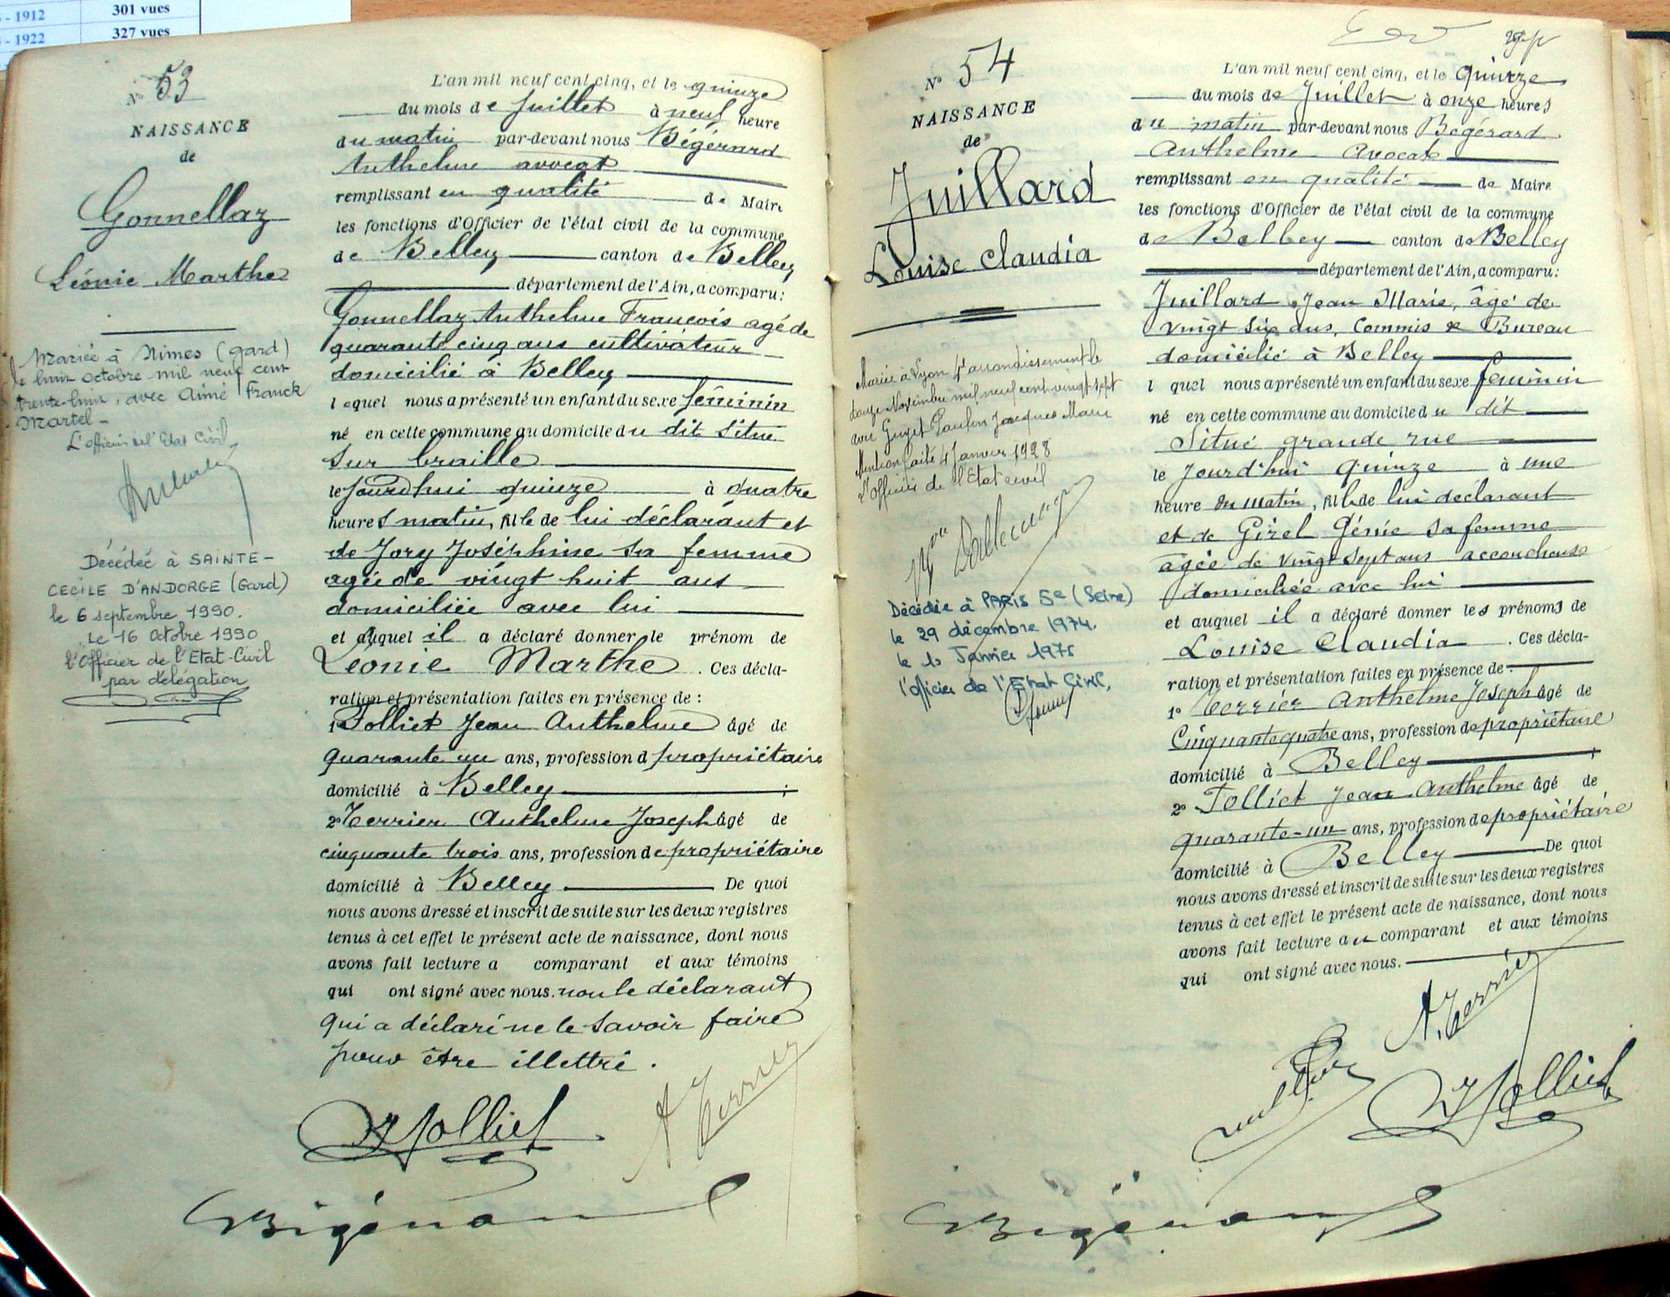 - 1912 301 vues
- 1922 327 vues
N° 53
NAISSANCE
de
Gonnellaz
Léonie Marthe
Mariée à Nimes (Gard)
le huit octobre mil neuf cent
trente-huit, avec Aimé Franck
Martel -
L'officier de l'Etat Civil,
Décédée à SAINTE-
CECILE D'ANDORGE (Gard)
le 6 septembre 1990.
Le 16 Octobre 1990
l'Officier de l'Etat-Civil
par délégation
L'an mil neuf cent cinq, et le quinze
du mois de Juillet à neuf heure
du matin par-devant nous Bégérard
Anthelme avocat
remplissant en qualité de Maire
les fonctions d'Officier de l'état civil de la commune
de Belley canton de Belley
département de l'Ain, a comparu:
Gonnellaz Anthelme François agé de
quarante cinq ans cultivateur
domicilié à Belley
lequel nous a présenté un enfant du sexe féminin
né en cette commune au domicile du dit situé
Sur braille
le Jourd'hui quinze à quatre
heures matin, fille de lui déclarant et
de Jory Joséphine sa femme
agée de vingt huit ans
domiciliée avec lui
et auquel il a déclaré donner le prénom de
Léonie Marthe. Ces décla-
ration et présentation faites en présence de:
1° Tolliet Jean Anthelme âgé de
quarante un ans, profession d propriétaire
domicilié à Belley ;
2° Terrier Anthelme Joseph âgé de
cinquante trois ans, profession de propriétaire
domicilié à Belley De quoi
nous avons dressé et inscrit de suite sur les deux registres
tenus à cet effet le présent acte de naissance, dont nous
avons fait lecture a comparant et aux témoins
qui ont signé avec nous. non le déclarant
qui a déclaré ne le savoir faire
pour être illettré.
A Terrier
J Tolliet
Bégérard
N° 54
NAISSANCE
de
Juillard
Louise Claudia
Mariée à Lyon 1er arrondissement le
douze Novembre mil neuf cent vingt sept
avec Guget Paulin Jacques Marie
Mention faite 4 Janvier 1928
L'Officier de l'Etat civil
Décédée à PARIS 5e (Seine)
le 29 décembre 1974.
le 10 Janvier 1975
l'officier de l'Etat Civil,
L'an mil neuf cent cinq, et le quinze
du mois de Juillet à onze heures
du matin par-devant nous Bégérard
Anthelme Avocat
remplissant en qualité de Maire
les fonctions d'Officier de l'état civil de la commune
de Belley canton de Belley
département de l'Ain, a comparu:
Juillard Jean Marie, âgé de
vingt six ans, Commis de Bureau
domicilié à Belley
l quel nous a présenté un enfant du sexe féminin
né en cette commune au domicile du dit
situé grande rue
le Jourd'hui quinze à une
heure du matin, fille de lui déclarant
et de Girel Génie sa femme
agée de vingt sept ans accoucheuse
domiciliée avec lui
et auquel il a déclaré donner les prénoms de
Louise Claudia. Ces décla-
ration et présentation faites en présence de
1° Terrier Anthelme Joseph âgé de
Cinquante quatre ans, profession de propriétaire
domicilié à Belley ;
2° Tolliet Jean Anthelme âgé de
quarante-un ans, profession de propriétaire
domicilié à Belley De quoi
nous avons dressé et inscrit de suite sur les deux registres
tenus à cet effet le présent acte de naissance, dont nous
avons fait lecture au comparant et aux témoins
qui ont signé avec nous.
A. Terrier
J Tolliet
Bégérard